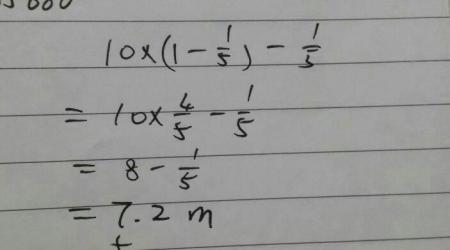 10×(1-1/5)-1/5
=10×4/5-1/5
=8-1/5
=7.2 m